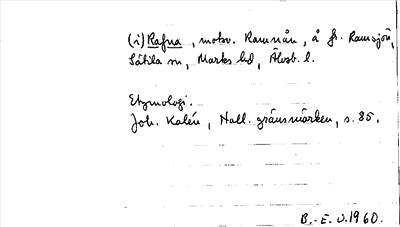 (i) Rafna, motsv. Ramnån, å fr. Ramsjön,
Sätila sn, Marks hd, Älvsb. l.
Etymologi.
Joh. Kalén, Hall. gränsmärken, s. 85.
B.-E. O. 1960.